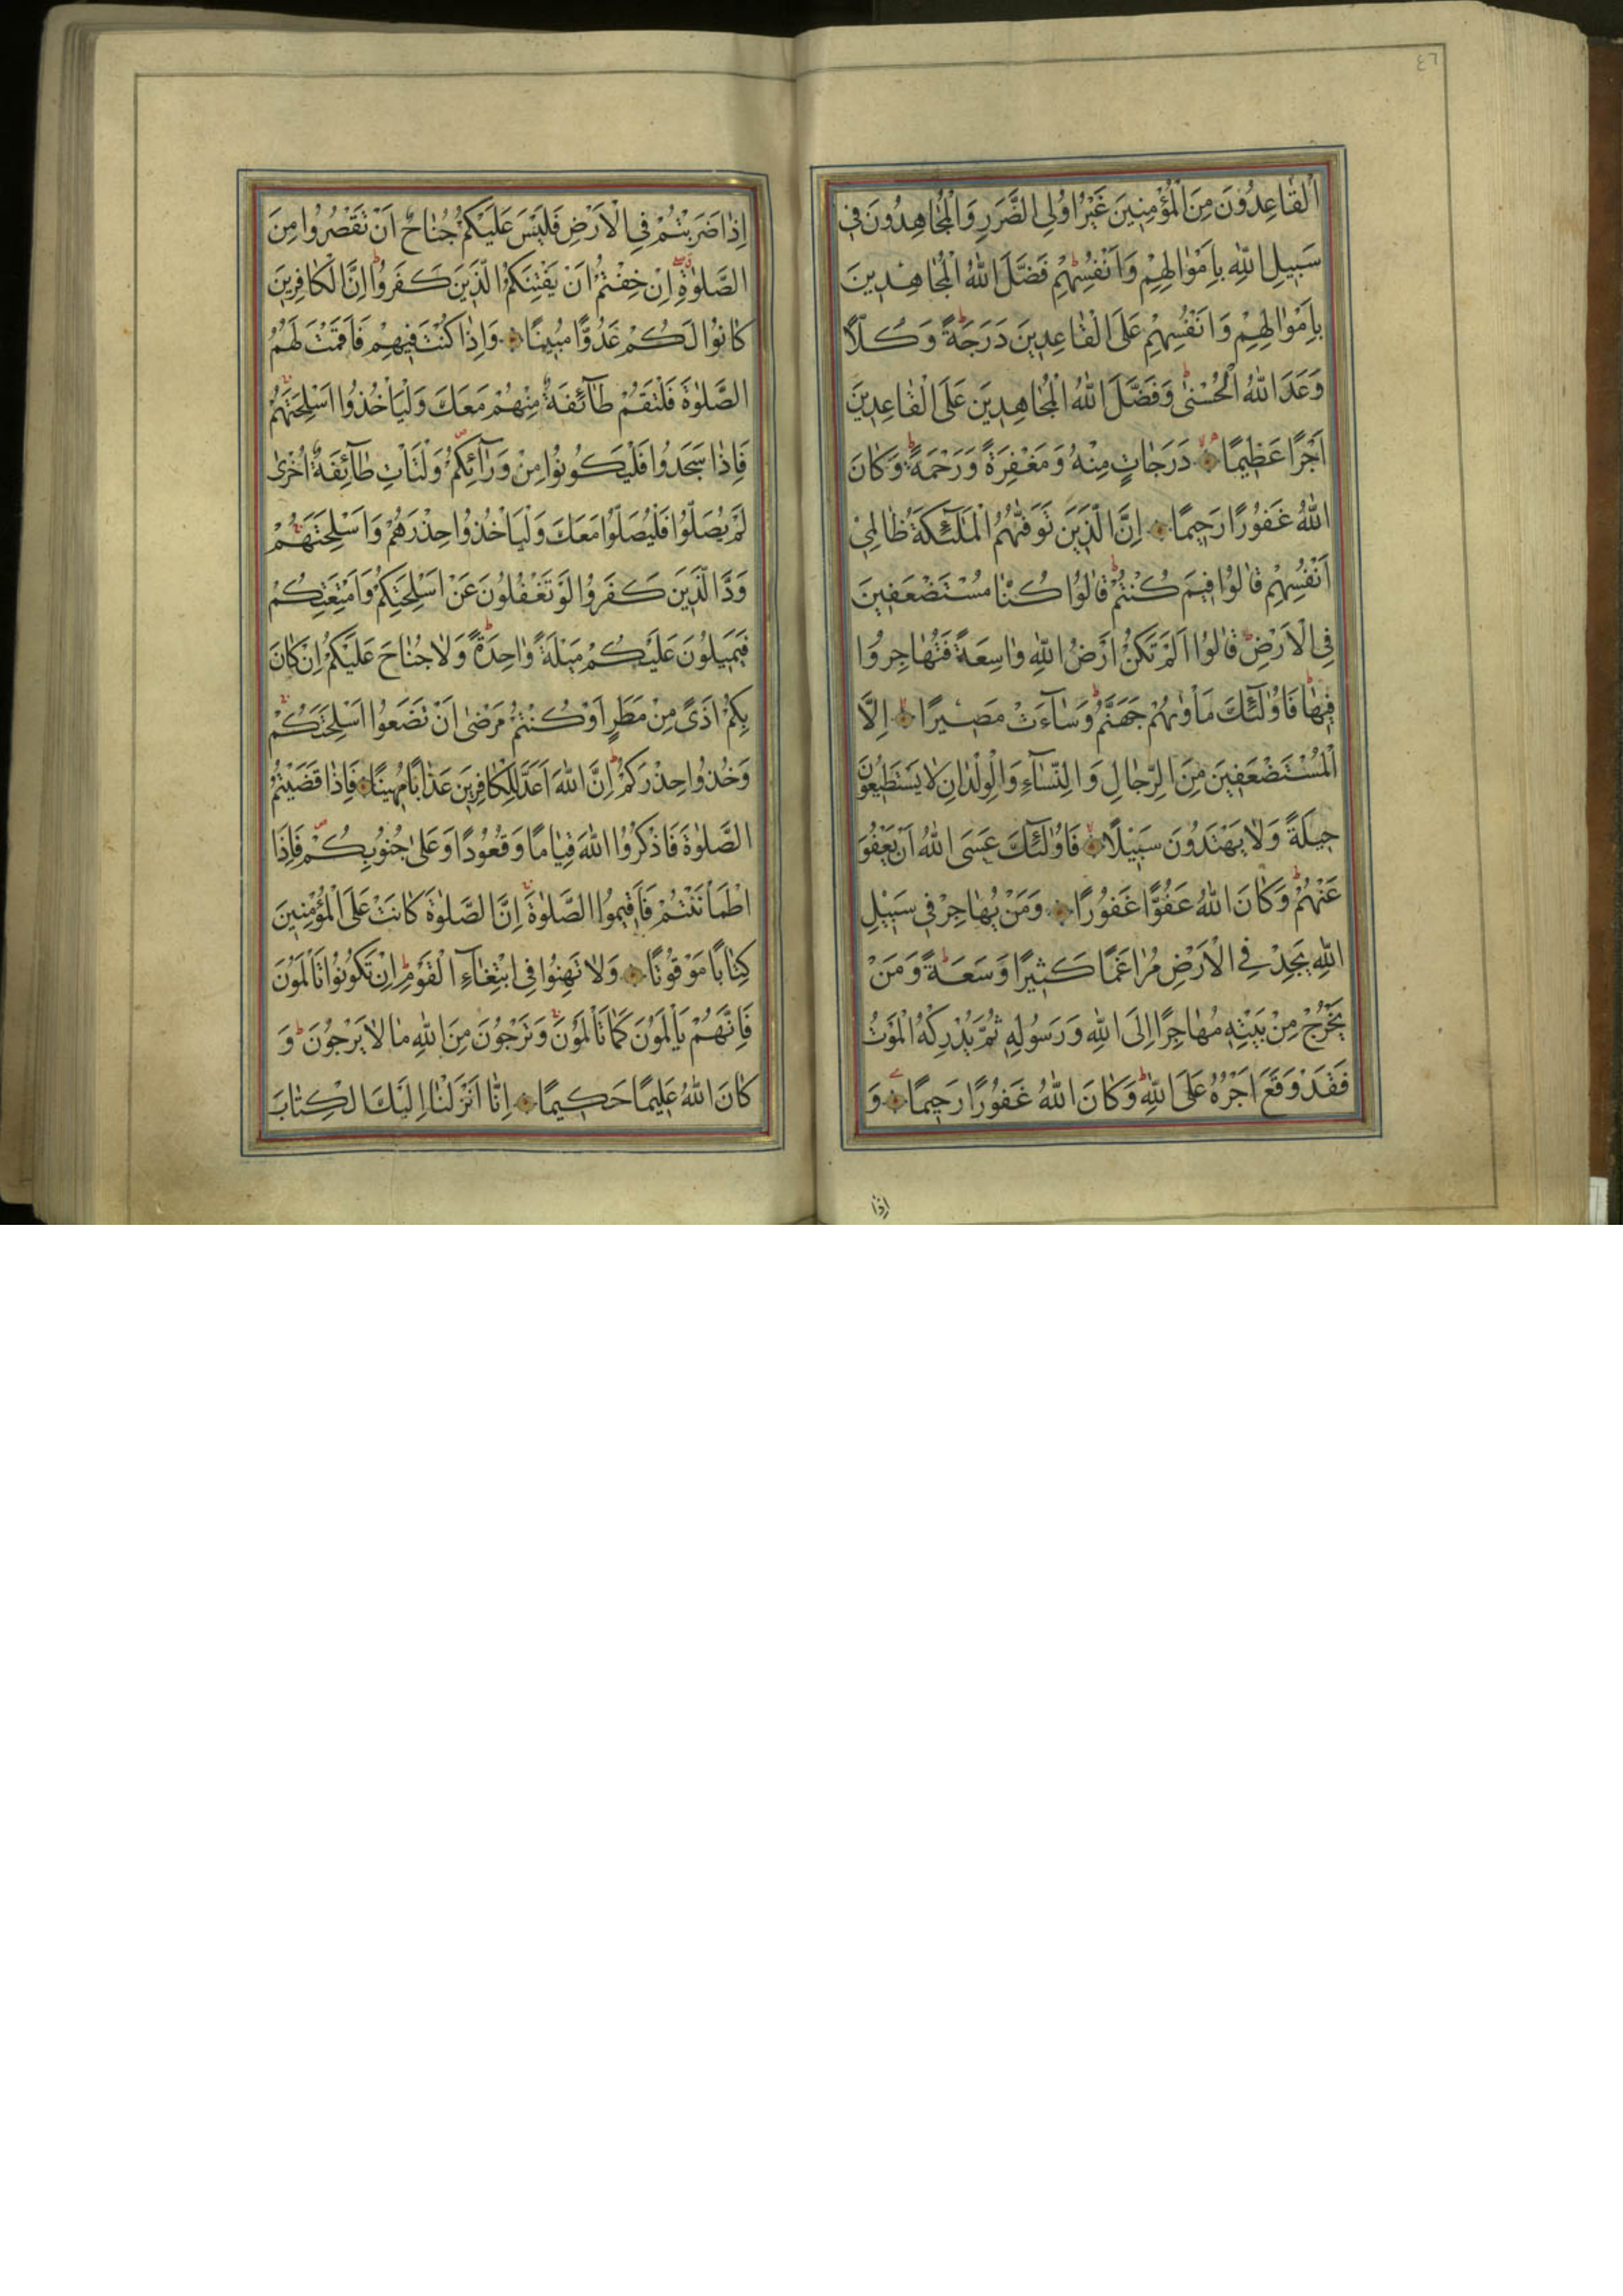 ٤٦
اَلْقَاعِدُونَ مِنَ الْمُؤْمِنِينَ غَيْرُ اُولِى الضَّرَرِ وَالْمُجَاهِدُونَ فِى
سَبِيلِ اللّٰهِ بِاَمْوَالِهِمْ وَاَنْفُسِهِمْ فَضَّلَ اللّٰهُ الْمُجَاهِدِينَ
بِاَمْوَالِهِمْ وَاَنْفُسِهِمْ عَلَى الْقَاعِدِينَ دَرَجَةً وَكُلًّا
وَعَدَ اللّٰهُ الْحُسْنٰى وَفَضَّلَ اللّٰهُ الْمُجَاهِدِينَ عَلَى الْقَاعِدِينَ
اَجْرًا عَظِيمًا دَرَجَاتٍ مِنْهُ وَمَغْفِرَةً وَرَحْمَةً وَكَانَ
اللّٰهُ غَفُورًا رَحِيمًا اِنَّ الَّذِينَ تَوَفّٰيهُمُ الْمَلٰٓئِكَةُ ظَالِمِى
اَنْفُسِهِمْ قَالُوا فِيمَ كُنْتُمْ قَالُوا كُنَّا مُسْتَضْعَفِينَ
فِى الْاَرْضِ قَالُوا اَلَمْ تَكُنْ اَرْضُ اللّٰهِ وَاسِعَةً فَتُهَاجِرُوا
فِيهَا فَاُولٰٓئِكَ مَاْوٰيهُمْ جَهَنَّمُ وَسَٓاءَتْ مَصِيرًا اِلَّا
الْمُسْتَضْعَفِينَ مِنَ الرِّجَالِ وَالنِّسَٓاءِ وَالْوِلْدَانِ لَا يَسْتَطِيعُونَ
حِيلَةً وَلَا يَهْتَدُونَ سَبِيلًا فَاُولٰٓئِكَ عَسَى اللّٰهُ اَنْ يَعْفُوَ
عَنْهُمْ وَكَانَ اللّٰهُ عَفُوًّا غَفُورًا وَمَنْ يُهَاجِرْ فِى سَبِيلِ
اللّٰهِ يَجِدْ فِى الْاَرْضِ مُرَاغَمًا كَثِيرًا وَسَعَةً وَمَنْ
يَخْرُجْ مِنْ بَيْتِهِ مُهَاجِرًا اِلَى اللّٰهِ وَرَسُولِهِ ثُمَّ يُدْرِكْهُ الْمَوْتُ
فَقَدْ وَقَعَ اَجْرُهُ عَلَى اللّٰهِ وَكَانَ اللّٰهُ غَفُورًا رَحِيمًا وَ
اِذَا
اِذَا ضَرَبْتُمْ فِى الْاَرْضِ فَلَيْسَ عَلَيْكُمْ جُنَاحٌ اَنْ تَقْصُرُوا مِنَ
الصَّلٰوةِ اِنْ خِفْتُمْ اَنْ يَفْتِنَكُمُ الَّذِينَ كَفَرُوا اِنَّ الْكَافِرِينَ
كَانُوا لَكُمْ عَدُوًّا مُبِينًا وَاِذَا كُنْتَ فِيهِمْ فَاَقَمْتَ لَهُمُ
الصَّلٰوةَ فَلْتَقُمْ طَٓائِفَةٌ مِنْهُمْ مَعَكَ وَلْيَاْخُذُوا اَسْلِحَتَهُمْ
فَاِذَا سَجَدُوا فَلْيَكُونُوا مِنْ وَرَٓائِكُمْ وَلْتَاْتِ طَٓائِفَةٌ اُخْرٰى
لَمْ يُصَلُّوا فَلْيُصَلُّوا مَعَكَ وَلْيَاْخُذُوا حِذْرَهُمْ وَاَسْلِحَتَهُمْ
وَدَّ الَّذِينَ كَفَرُوا لَوْ تَغْفُلُونَ عَنْ اَسْلِحَتِكُمْ وَاَمْتِعَتِكُمْ
فَيَمِيلُونَ عَلَيْكُمْ مَيْلَةً وَاحِدَةً وَلَا جُنَاحَ عَلَيْكُمْ اِنْ كَانَ
بِكُمْ اَذًى مِنْ مَطَرٍ اَوْ كُنْتُمْ مَرْضٰى اَنْ تَضَعُوا اَسْلِحَتَكُمْ
وَخُذُوا حِذْرَكُمْ اِنَّ اللّٰهَ اَعَدَّ لِلْكَافِرِينَ عَذَابًا مُهِينًا فَاِذَا قَضَيْتُمُ
الصَّلٰوةَ فَاذْكُرُوا اللّٰهَ قِيَامًا وَقُعُودًا وَعَلٰى جُنُوبِكُمْ فَاِذَا
اطْمَاْنَنْتُمْ فَاَقِيمُوا الصَّلٰوةَ اِنَّ الصَّلٰوةَ كَانَتْ عَلَى الْمُؤْمِنِينَ
كِتَابًا مَوْقُوتًا وَلَا تَهِنُوا فِى ابْتِغَٓاءِ الْقَوْمِ اِنْ تَكُونُوا تَاْلَمُونَ
فَاِنَّهُمْ يَاْلَمُونَ كَمَا تَاْلَمُونَ وَتَرْجُونَ مِنَ اللّٰهِ مَا لَا يَرْجُونَ وَ
كَانَ اللّٰهُ عَلِيمًا حَكِيمًا اِنَّا اَنْزَلْنَا اِلَيْكَ الْكِتَابَ